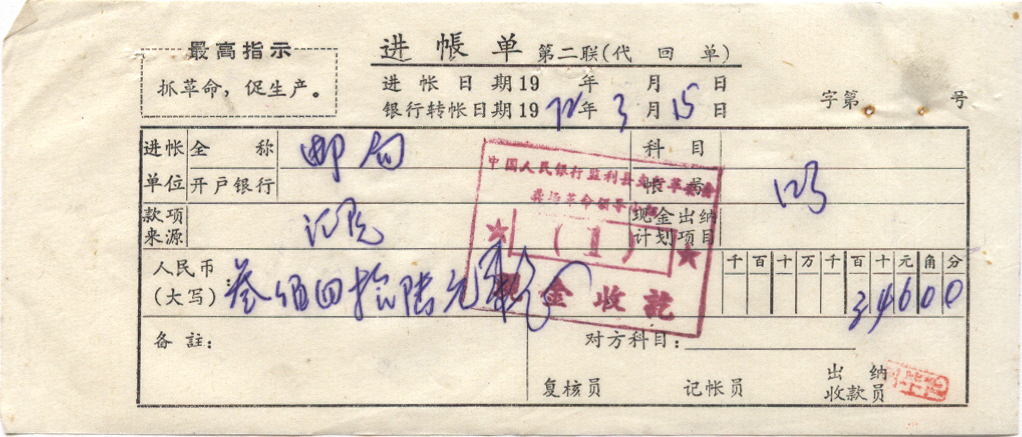 最高指示
抓革命，促生产。
进帐单 第二联(代回单)
进帐日期19 年 月 日
银行转帐日期1972年3月15日
字第 号
进帐单位 全称 邮局 科目
开户银行 帐号
款项来源 现金出纳计划项目
中国人民银行监利县支行革委会
革命领导小组
(1)
现金收讫
人民币(大写)： 叁佰四拾陆元
千百十万千百十元角分
34600
备註：
对方科目：
复核员 记帐员 出纳收款员